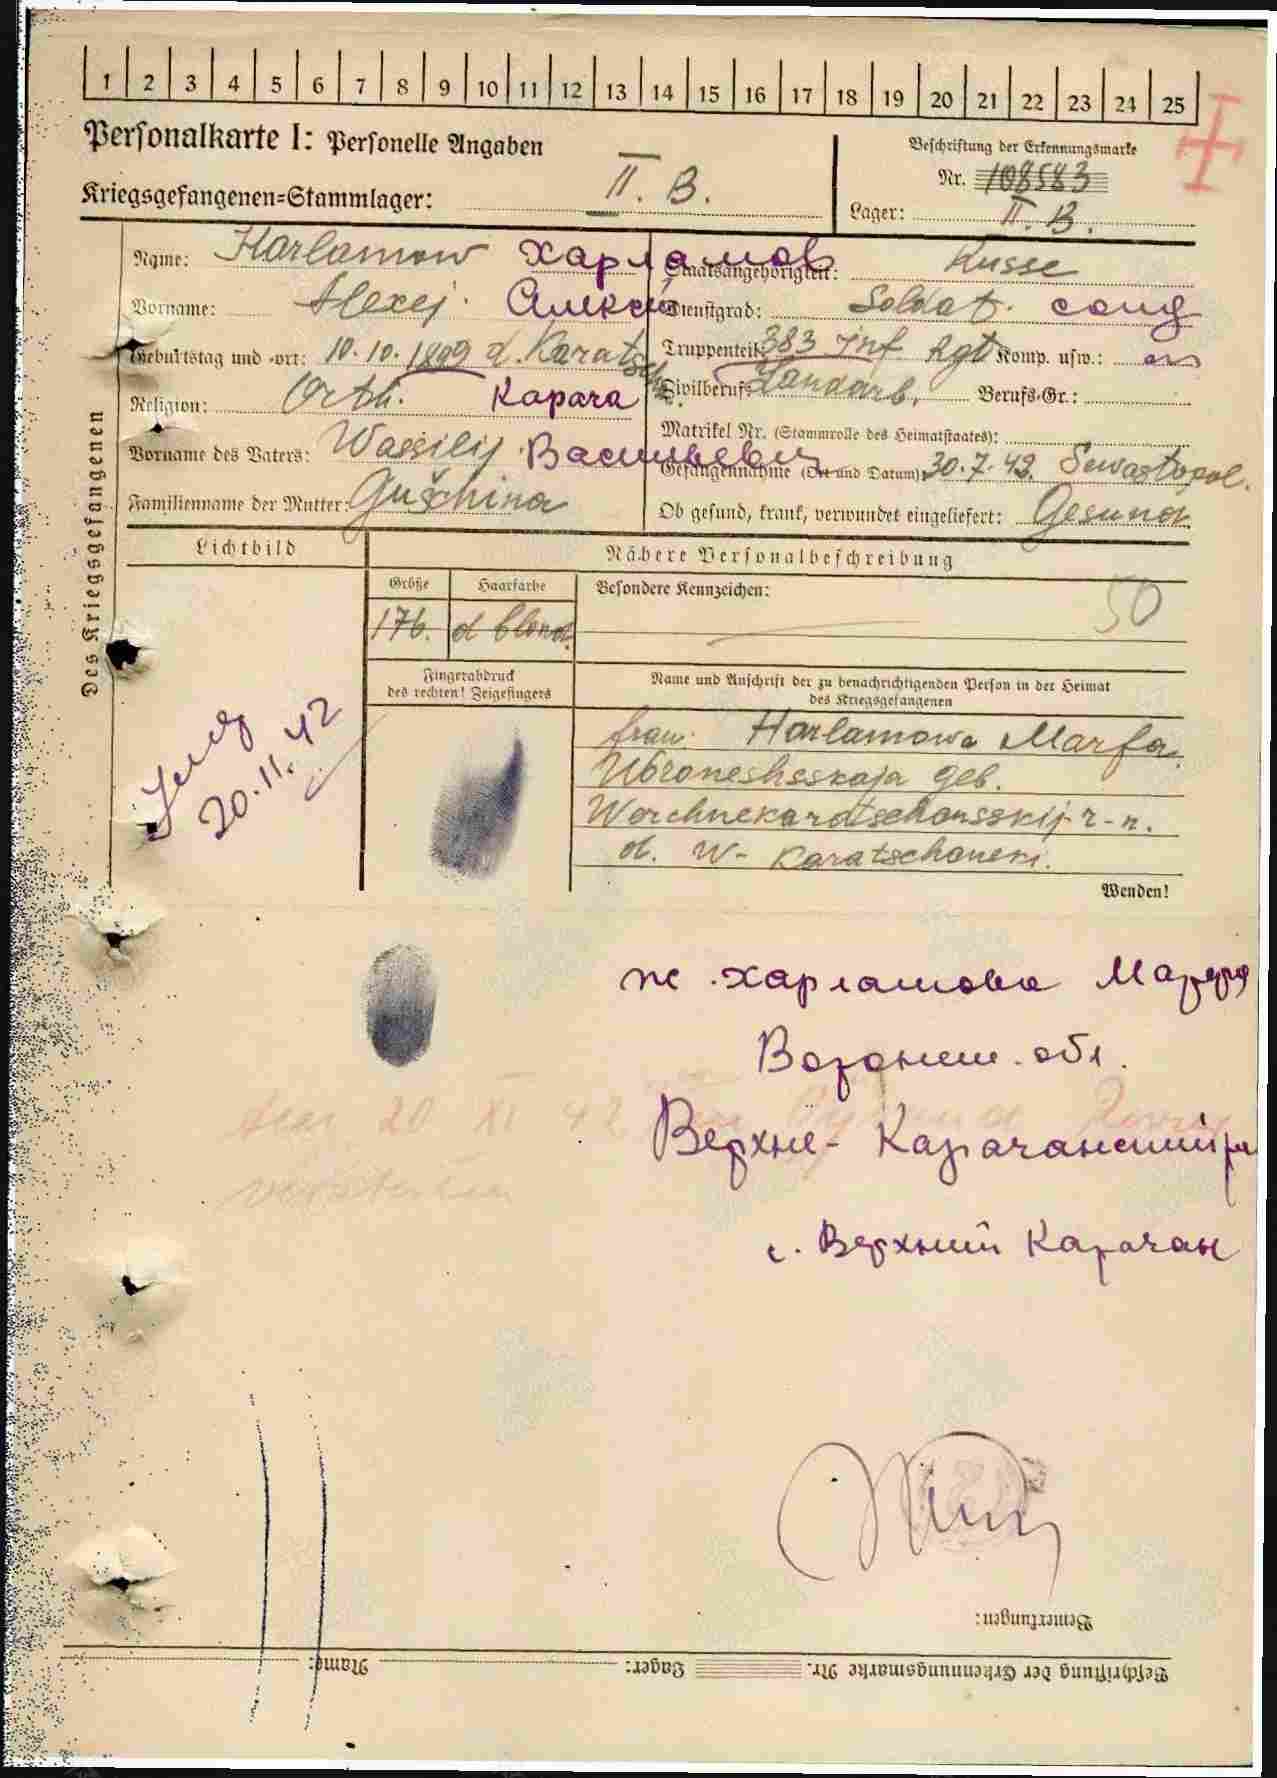 1 2 3 4 5 6 7 8 9 10 11 12 13 14 15 16 17 18 19 20 21 22 23 24 25
Personalkarte I: Personelle Angaben
Kriegsgefangenen-Stammlager: II. B.
Beschriftung der Erkennungsmarke
Nr. 108583
Lager: II. B.
Des Kriegsgefangenen
Name: Harlamow Харламов
Vorname: Alexej. Алексей
Geburtstag und -ort: 10.10.1899 d. Karatschan.
Religion: Orth. Карача
Vorname des Vaters: Wassilij Васильевич
Familienname der Mutter: Guschina
Staatsangehörigkeit: Russe
Dienstgrad: Soldat. солд
Truppenteil: 383 Inf. Rgt Komp. usw.:
Zivilberuf: Landarb. Berufs-Gr.:
Matrikel Nr. (Stammrolle des Heimatstaates):
Gefangennahme (Ort und Datum): 30.7.42. Sewastopol.
Ob gesund, krank, verwundet eingeliefert: Gesund
Lichtbild
Nähere Personalbeschreibung
Größe
176.
Haarfarbe
d blond.
Besondere Kennzeichen:
50
Fingerabdruck
des rechten! Zeigefingers
Name und Anschrift der zu benachrichtigenden Person in der Heimat
des Kriegsgefangenen
frau. Harlamowa Marfa.
Woroneshsskaja geb.
Werchnekaratschansskij r-n.
d. W- Karatschanski.
Wenden!
20.11.42
ж. Харламова Марфа
Воронеж. обл.
Верхне-Карачанский р
с. Верхний Карачан
20 XI 42
verstorben
Bemerkungen:
Beschriftung der Erkennungsmarke Nr. Lager: Name: